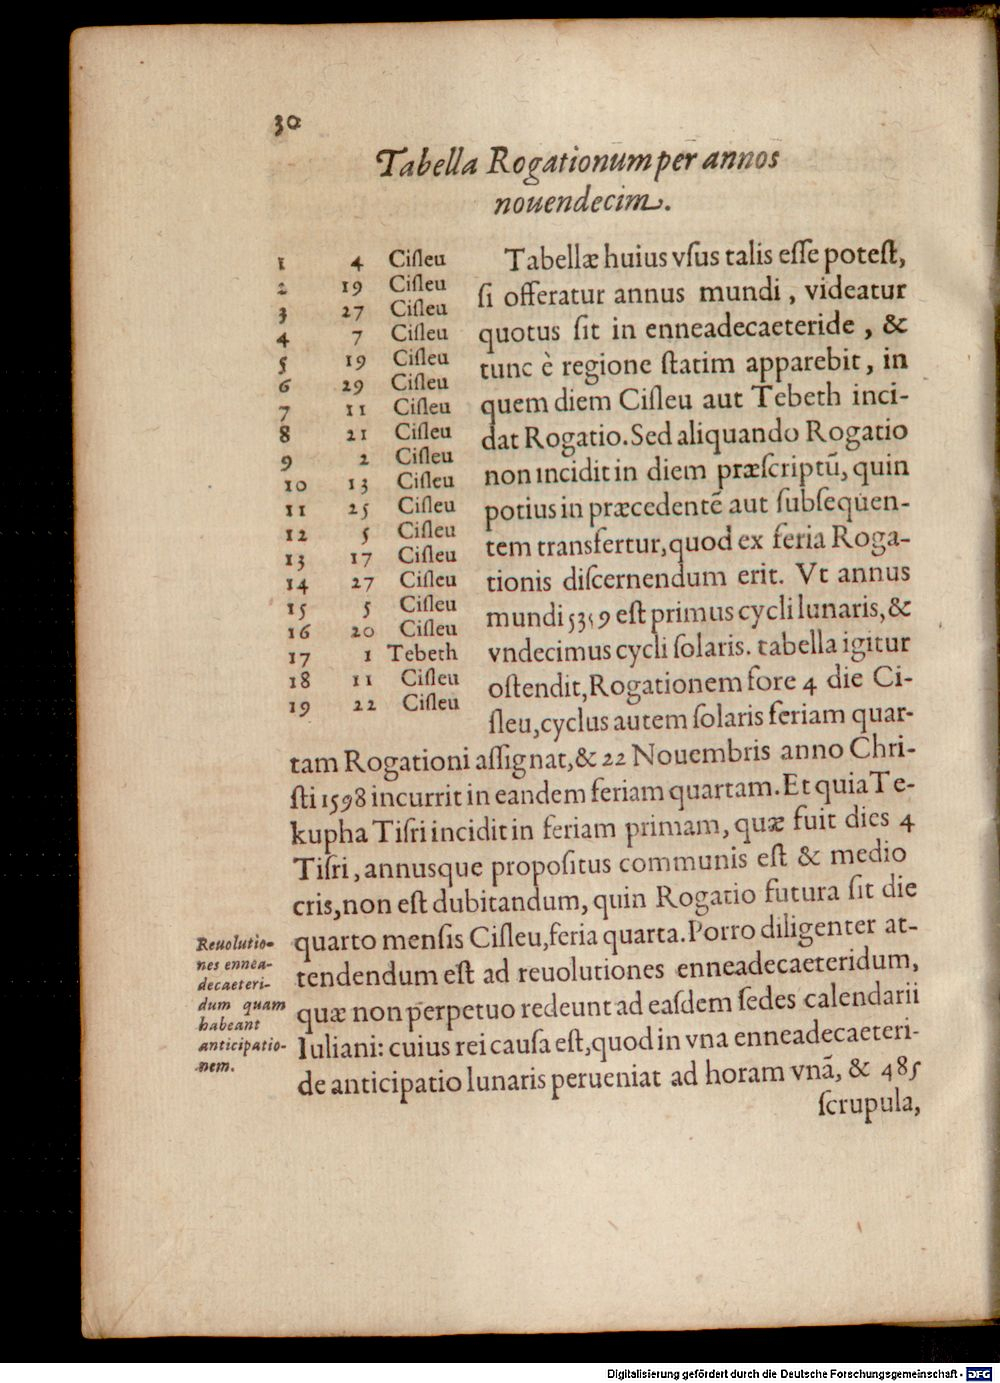 30
Tabella Rogationum per annos
nouendecim.
1 4 Ciſleu
2 19 Ciſleu
3 27 Ciſleu
4 7 Ciſleu
5 19 Ciſleu
6 29 Ciſleu
7 11 Ciſleu
8 21 Ciſleu
9 2 Ciſleu
10 13 Ciſleu
11 25 Ciſleu
12 5 Ciſleu
13 17 Ciſleu
14 27 Ciſleu
15 5 Ciſleu
16 20 Ciſleu
17 1 Tebeth
18 11 Ciſleu
19 22 Ciſleu
Tabellæ huius vſus talis eſſe poteſt,
ſi offeratur annus mundi, videatur
quotus ſit in enneadecaeteride, &
tunc è regione ſtatim apparebit, in
quem diem Ciſleu aut Tebeth inci-
dat Rogatio. Sed aliquando Rogatio
non incidit in diem præſcriptũ, quin
potius in præcedentẽ aut ſubſequen-
tem transfertur, quod ex feria Roga-
tionis diſcernendum erit. Vt annus
mundi 5359 eſt primus cycli lunaris, &
vndecimus cycli ſolaris. tabella igitur
oſtendit, Rogationem fore 4 die Ci-
ſleu, cyclus autem ſolaris feriam quar-
tam Rogationi aſſignat, & 22 Nouembris anno Chri-
ſti 1598 incurrit in eandem feriam quartam. Et quia Te-
kupha Tiſri incidit in feriam primam, quæ fuit dies 4
Tiſri, annusque propoſitus communis eſt & medio
cris, non eſt dubitandum, quin Rogatio futura ſit die
quarto menſis Ciſleu, feria quarta. Porro diligenter at-
tendendum eſt ad reuolutiones enneadecaeteridum,
quæ non perpetuo redeunt ad eaſdem ſedes calendarii
Iuliani: cuius rei cauſa eſt, quod in vna enneadecaeteri-
de anticipatio lunaris perueniat ad horam vnã, & 485
ſcrupula,
Reuolutio-
nes ennea-
decaeteri-
dum quam
habeant
anticipatio-
nem.
Digitalisierung gefördert durch die Deutsche Forschungsgemeinschaft - DFG